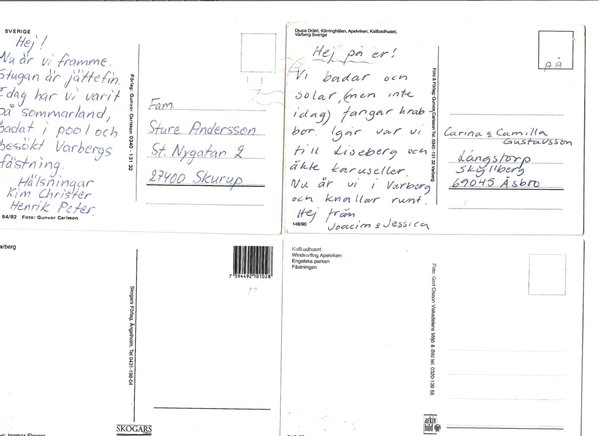 SVERIGE
Hej!
Nu är vi framme.
Stugan är jättefin.
Idag har vi varit
på sommarland,
badat i pool och
besökt Varbergs
fästning.
Hälsningar
Kim Christer
Henrik Peter.
84/82 Foto: Gunvor Carlsson
Förlag: Gunvor Carlsson 0340 / 131 32
Fam
Sture Andersson
St. Nygatar 2
27400 Skurup
Djupa Dräjet, Kärringhålan, Apelviken, Kallbadhuset,
Varberg Sverige
Hej på er!
Vi badar och
solar, (men inte
idag) fångar krab
bor. Igår var vi
till Liseberg och
åkte karuseller.
Nu är vi i Varberg
och knallar runt.
Hej från
Joacim & Jessica
148/90
Foto & förlag: Gunvor Carlsson, 0340-132 32 Varberg
PÅ
Carina & Camilla
Gustavsson
Långstorp
Skyllberg
69045 Åsbro
arberg
7 394492 101028
Skogars Förlag, Ängelholm. Tel 0431-196 04
SKOGARS
o: Ingemar Skogar
Kallbadhuset
Windsurfing Apelviken
Engelska parken
Fästningen
arkiv
bild